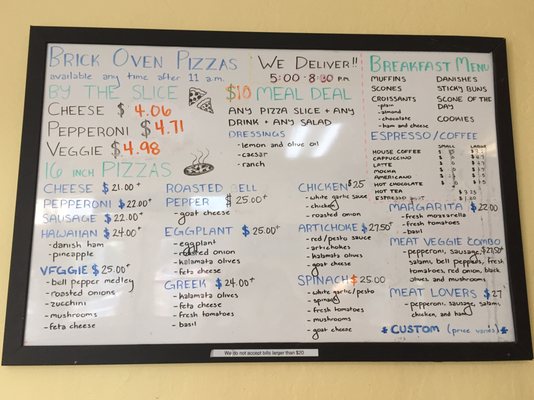 BRICK OVEN PIZZAS
available any time after 11 a.m.
BY THE SLICE
CHEESE $4.06
PEPPERONI $4.71
VEGGIE $4.98
16 INCH PIZZAS
CHEESE $21.00+
PEPPERONI $22.00+
SAUSAGE $22.00+
HAWAIIAN $24.00+
- danish ham
- pineapple
VEGGIE $25.00+
- bell pepper medley
- roasted onions
- zucchini
- mushrooms
- feta cheese
WE DELIVER!!
5:00-8:30 PM
$10 MEAL DEAL
ANY PIZZA SLICE + ANY
DRINK + ANY SALAD
DRESSINGS
- lemon and olive oil
- caesar
- ranch
ROASTED BELL
PEPPER $25.00+
- goat cheese
EGGPLANT $25.00+
- eggplant
- roasted onion
- kalamata olives
- feta cheese
GREEK $24.00+
- kalamata olives
- feta cheese
- fresh tomatoes
- basil
CHICKEN $25
- white garlic sauce
- chicken
- roasted onion
ARTICHOKE $27.50+
- red/pesto sauce
- artichokes
- kalamata olives
- goat cheese
SPINACH $25.00
- white garlic/pesto
- spinach
- fresh tomatoes
- mushrooms
- goat cheese
BREAKFAST MENU
MUFFINS
SCONES
CROISSANTS
- plain
- almond
- chocolate
- ham and cheese
DANISHES
STICKY BUNS
SCONE OF THE
DAY
COOKIES
ESPRESSO/COFFEE
SMALL LARGE
HOUSE COFFEE
CAPPUCCINO
LATTE
MOCHA
AMERICANO
HOT CHOCOLATE
HOT TEA
ESPRESSO
MARGARITA $22.00
- fresh mozzarella
- fresh tomatoes
- basil
MEAT VEGGIE COMBO
- pepperoni, sausage,
salami, bell peppers, fresh
tomatoes, red onion, black
olives and mushrooms
MEAT LOVERS $27
- pepperoni, sausage, salami,
chicken, and ham
*CUSTOM (price varies)*
We do not accept bills larger than $20